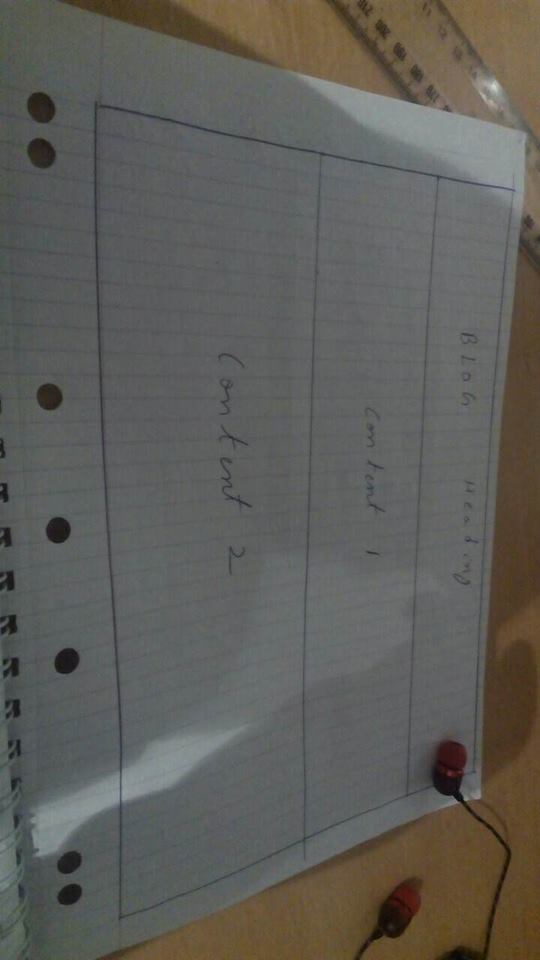 BLOG Heading
Content 1
Content 2